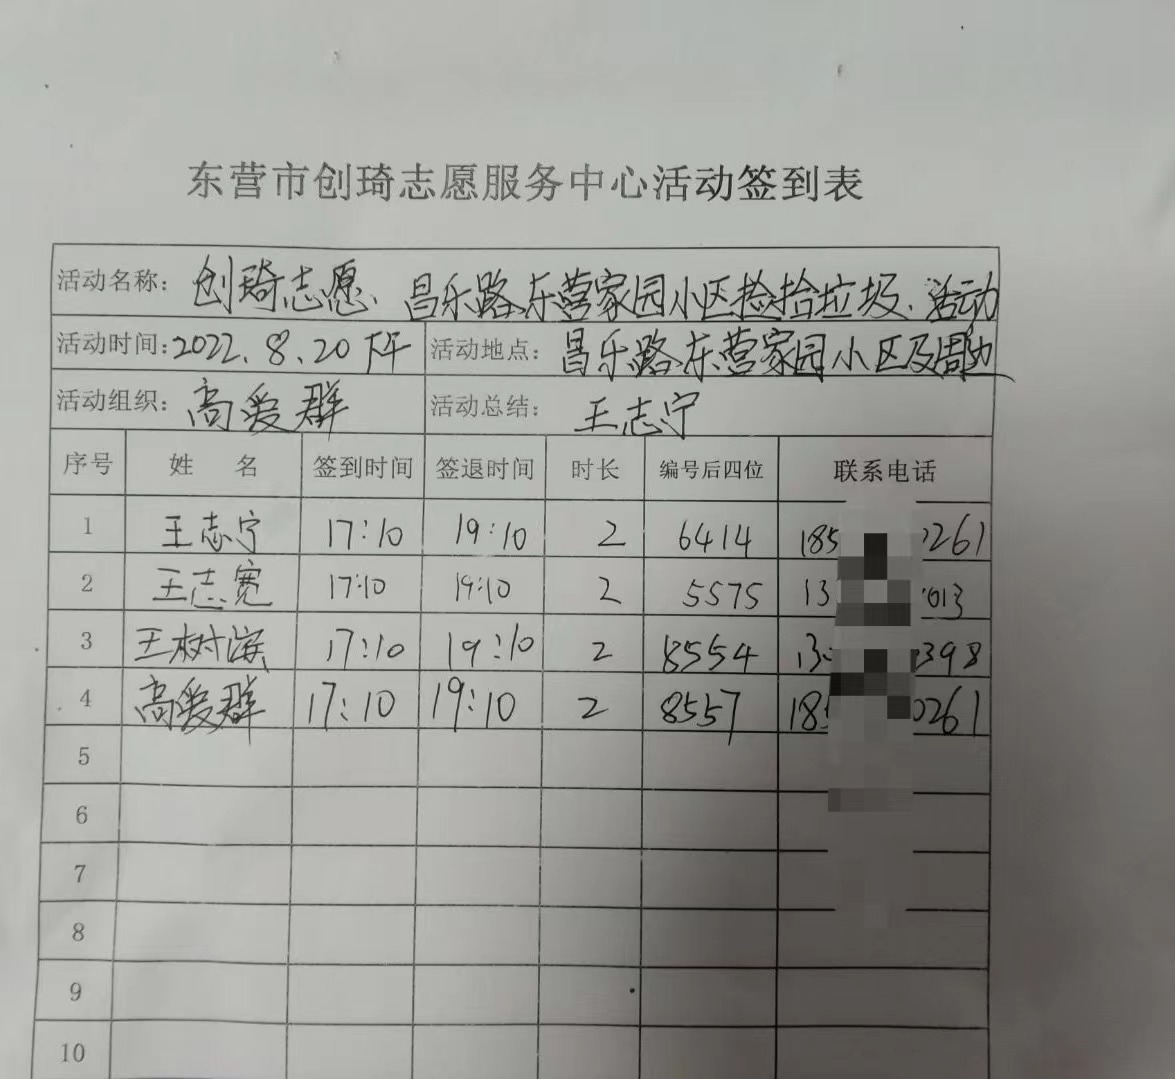 东营市创琦志愿服务中心活动签到表
活动名称: 创琦志愿、昌乐路东营家园小区捡拾垃圾、活动
活动时间: 2022.8.20下午 活动地点: 昌乐路东营家园小区及周边
活动组织: 高爱群 活动总结: 王志宁
序号 姓 名 签到时间 签退时间 时长 编号后四位 联系电话
1 王志宁 17:10 19:10 2 6414 185 0261
2 王志宽 17:10 19:10 2 5575 13 013
3 王树滨 17:10 19:10 2 8554 13 398
4 高爱群 17:10 19:10 2 8557 185 0261
5
6
7
8
9
10